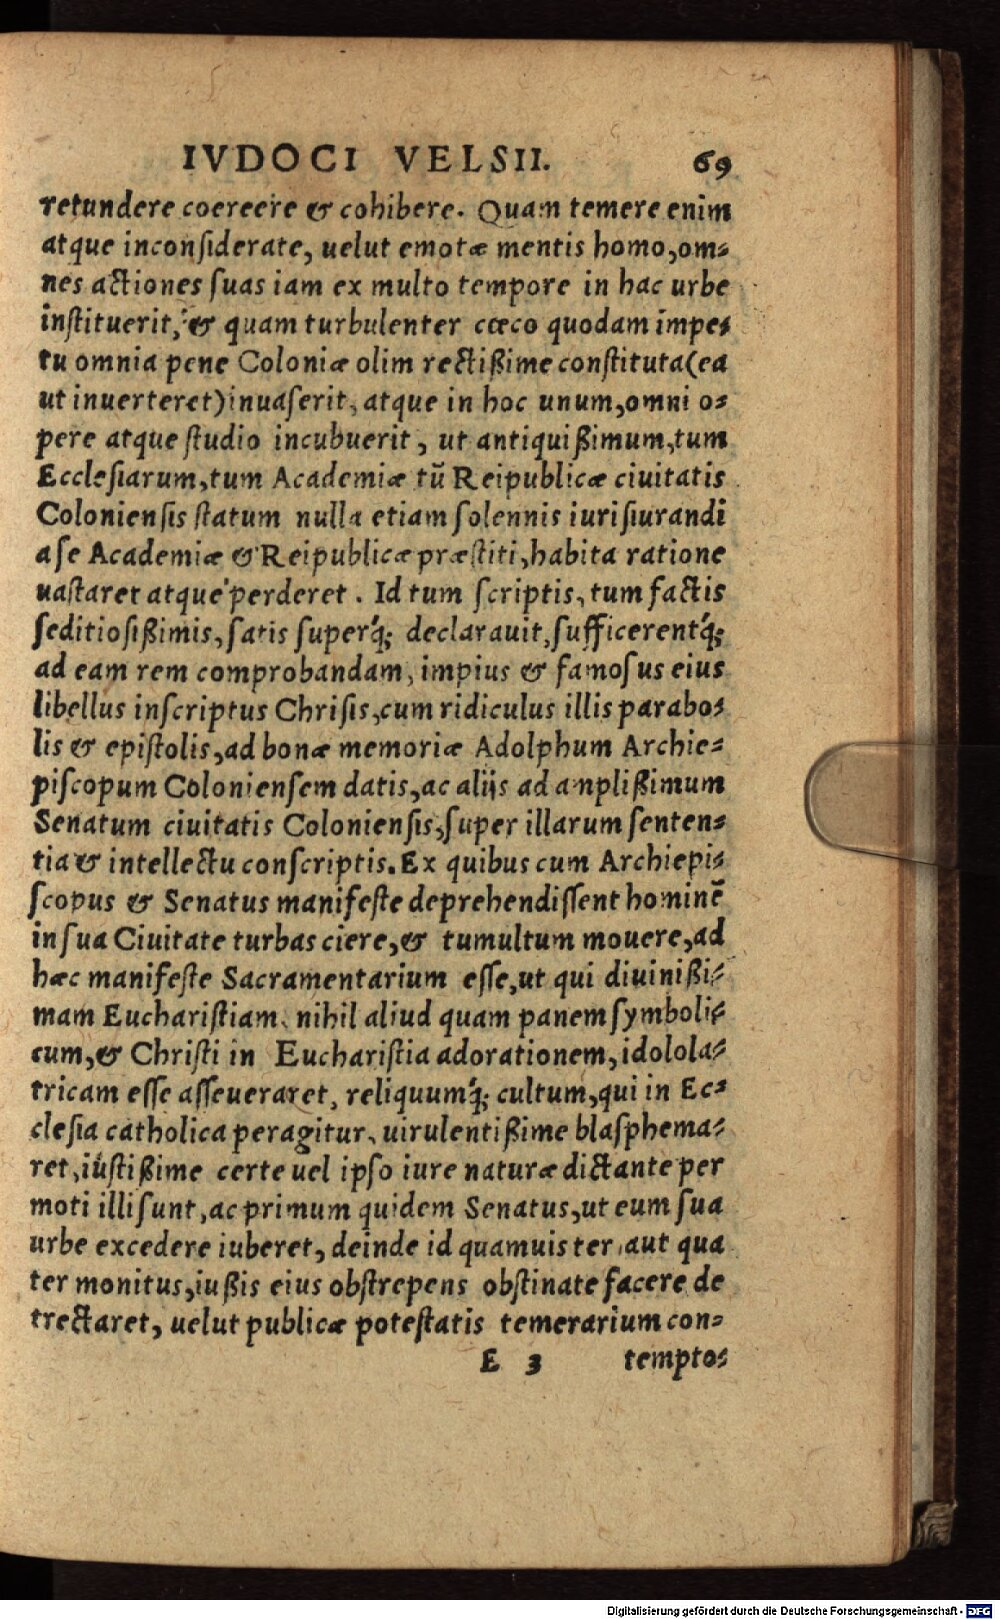 IVDOCI VELSII. 69
retundere coercere & cohibere. Quam temere enim
atque inconsiderate, uelut emotæ mentis homo, om-
nes actiones suas iam ex multo tempore in hac urbe
instituerit, & quam turbulenter cœco quodam impe-
tu omnia pene Coloniæ olim rectißime constituta (ea
ut inuerteret) inuaserit, atque in hoc unum, omni o-
pere atque studio incubuerit, ut antiquißimum, tum
Ecclesiarum, tum Academiæ tū Reipublicæ ciuitatis
Coloniensis statum nulla etiam solennis iurisiurandi
a se Academiæ & Reipublicæ præstiti, habita ratione
uastaret atque perderet. Id tum scriptis, tum factis
seditiosißimis, satis superq́; declarauit, sufficerentq́;
ad eam rem comprobandam, impius & famosus eius
libellus inscriptus Chrisis, cum ridiculus illis parabo-
lis & epistolis, ad bonæ memoriæ Adolphum Archie-
piscopum Coloniensem datis, ac aliis ad amplißimum
Senatum ciuitatis Coloniensis, super illarum senten-
tia & intellectu conscriptis. Ex quibus cum Archiepi-
scopus & Senatus manifeste deprehendissent hominē
in sua Ciuitate turbas ciere, & tumultum mouere, ad
hæc manifeste Sacramentarium esse, ut qui diuinißi-
mam Eucharistiam, nihil aliud quam panem symboli-
cum, & Christi in Eucharistia adorationem, idolola-
tricam esse asseueraret, reliquumq́; cultum, qui in Ec-
clesia catholica peragitur, uirulentißime blasphema-
ret, iustißime certe uel ipso iure naturæ dictante per
moti illi sunt, ac primum quidem Senatus, ut eum sua
urbe excedere iuberet, deinde id quamuis ter aut qua
ter monitus, iußis eius obstrepens obstinate facere de
trectaret, uelut publicæ potestatis temerarium con-
E 3 tempto-
Digitalisierung gefördert durch die Deutsche Forschungsgemeinschaft - DFG